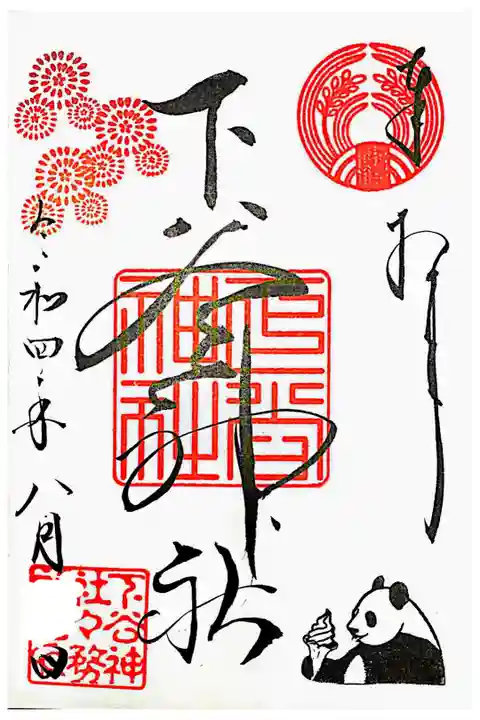 奉拝
下谷神社
下谷
神社
令和四年八月
日
下谷神
社々務